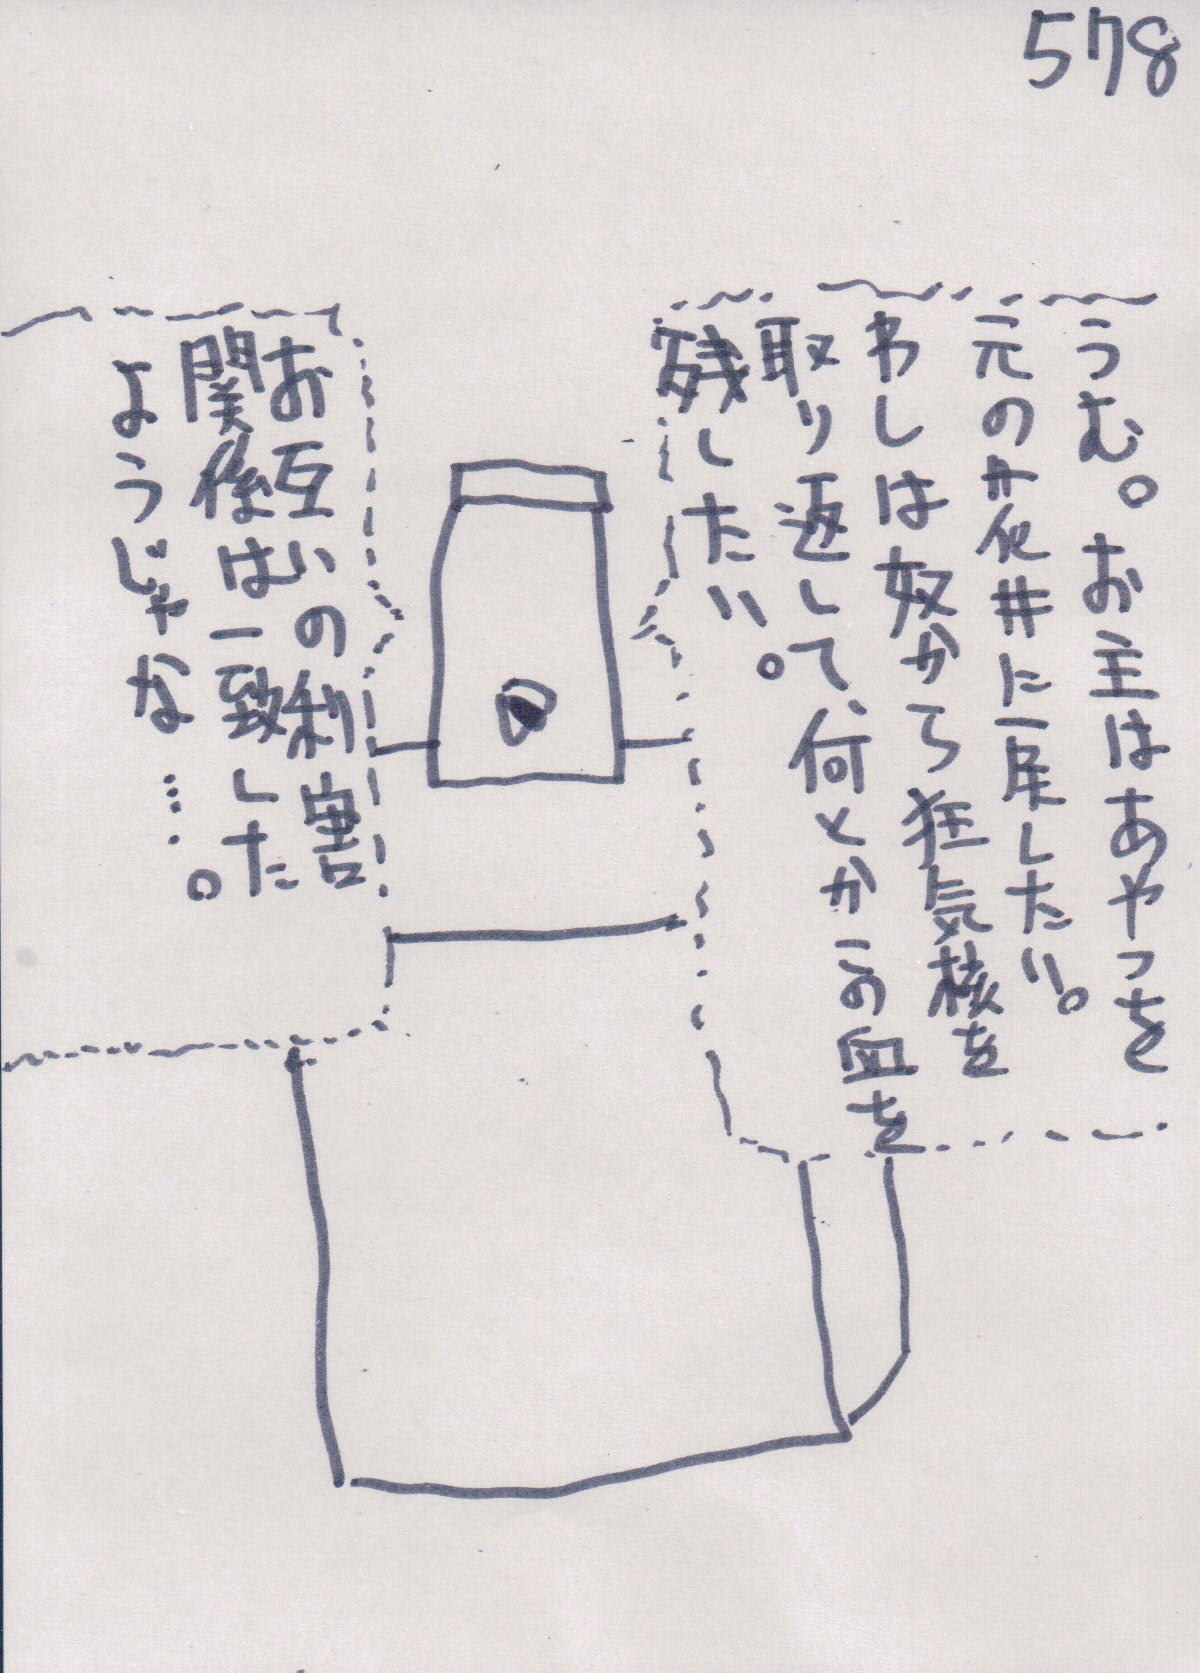 578
うむ。お主はあやつを
元の花井に戻したい。
わしは奴から狂気核を
取り返して、何とかこの血を
残したい。
お互いの利害
関係は一致した
ようじゃな…。